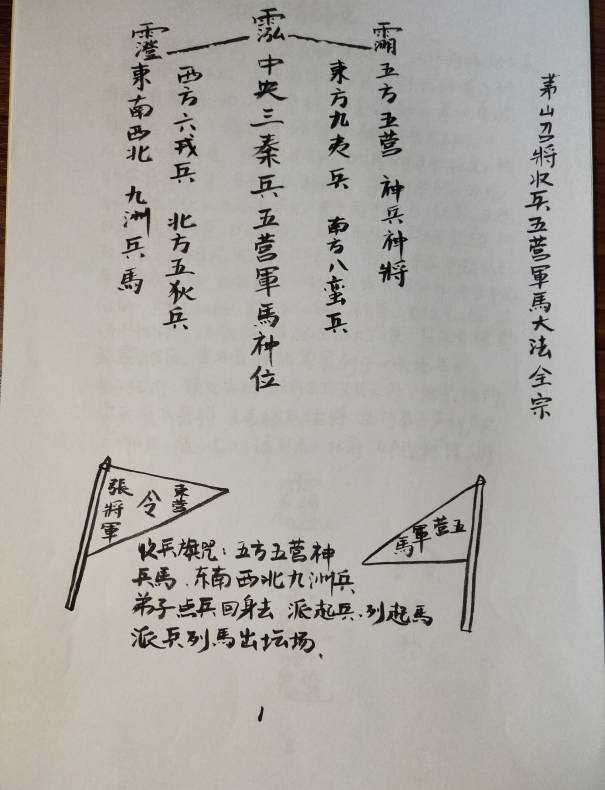 茅山召將收兵五营軍馬大法全宗
五方五营 神兵神將
東方九夷兵 南方八蛮兵
中央三秦兵五营軍馬神位
西方六戎兵 北方五狄兵
東南西北 九洲兵馬
張將軍
令
東营
五营軍馬
收兵旗咒：五方五营神
兵馬、东南西北九洲兵
弟子点兵回身去 派起兵、列起馬
派兵列馬出坛场、
1